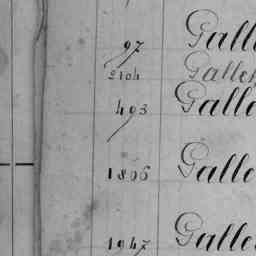 97 Gall
2104 Galle
493 Galle
1806 Galle
1947 Galle